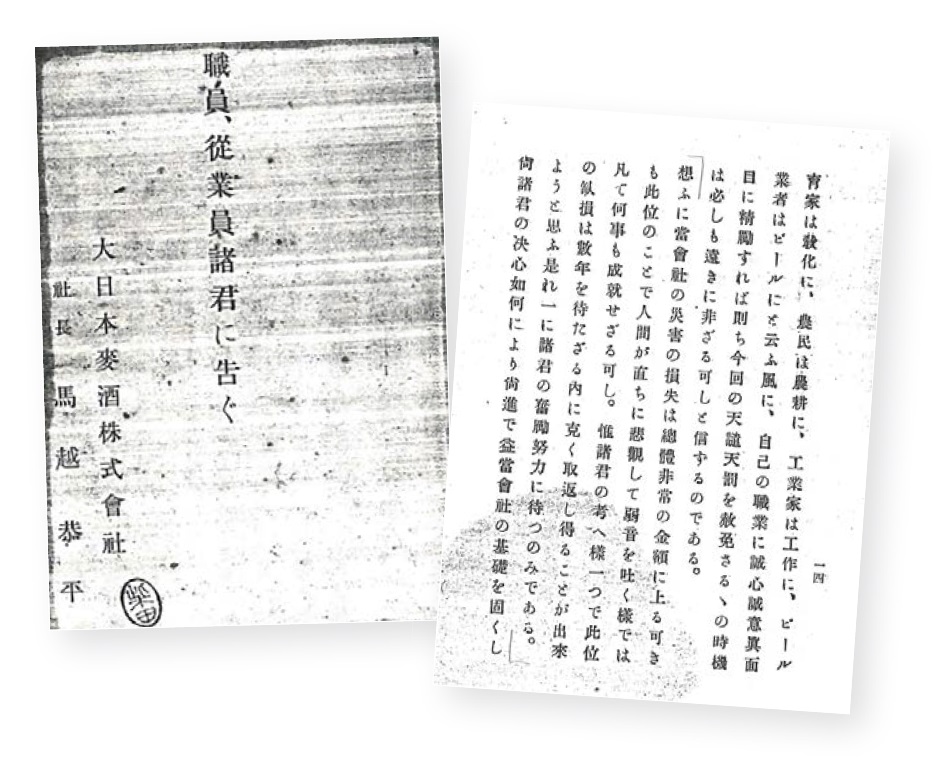 職員、從業員諸君に告ぐ
大日本麥酒株式會社
社長 馬越恭平
柴田
一四
育家は敎化に、農民は農耕に、工業家は工作に、ビール
業者はビールにと云ふ風に、自己の職業に誠心誠意眞面
目に精勵すれば則ち今回の天譴天罰を赦免さるゝの時機
は必しも遠きに非ざる可しと信するのである。
想ふに當會社の災害の損失は總體非常の金額に上る可き
も此位のことで人間が直ちに悲觀して弱音を吐く樣では
凡て何事も成就せざる可し。惟諸君の考へ樣一つで此位
の缺損は數年を待たざる內に克く取返し得ることが出來
ようと思ふ是れ一に諸君の奮勵努力に待つのみである。
尙諸君の決心如何により尙進で益當會社の基礎を固くし